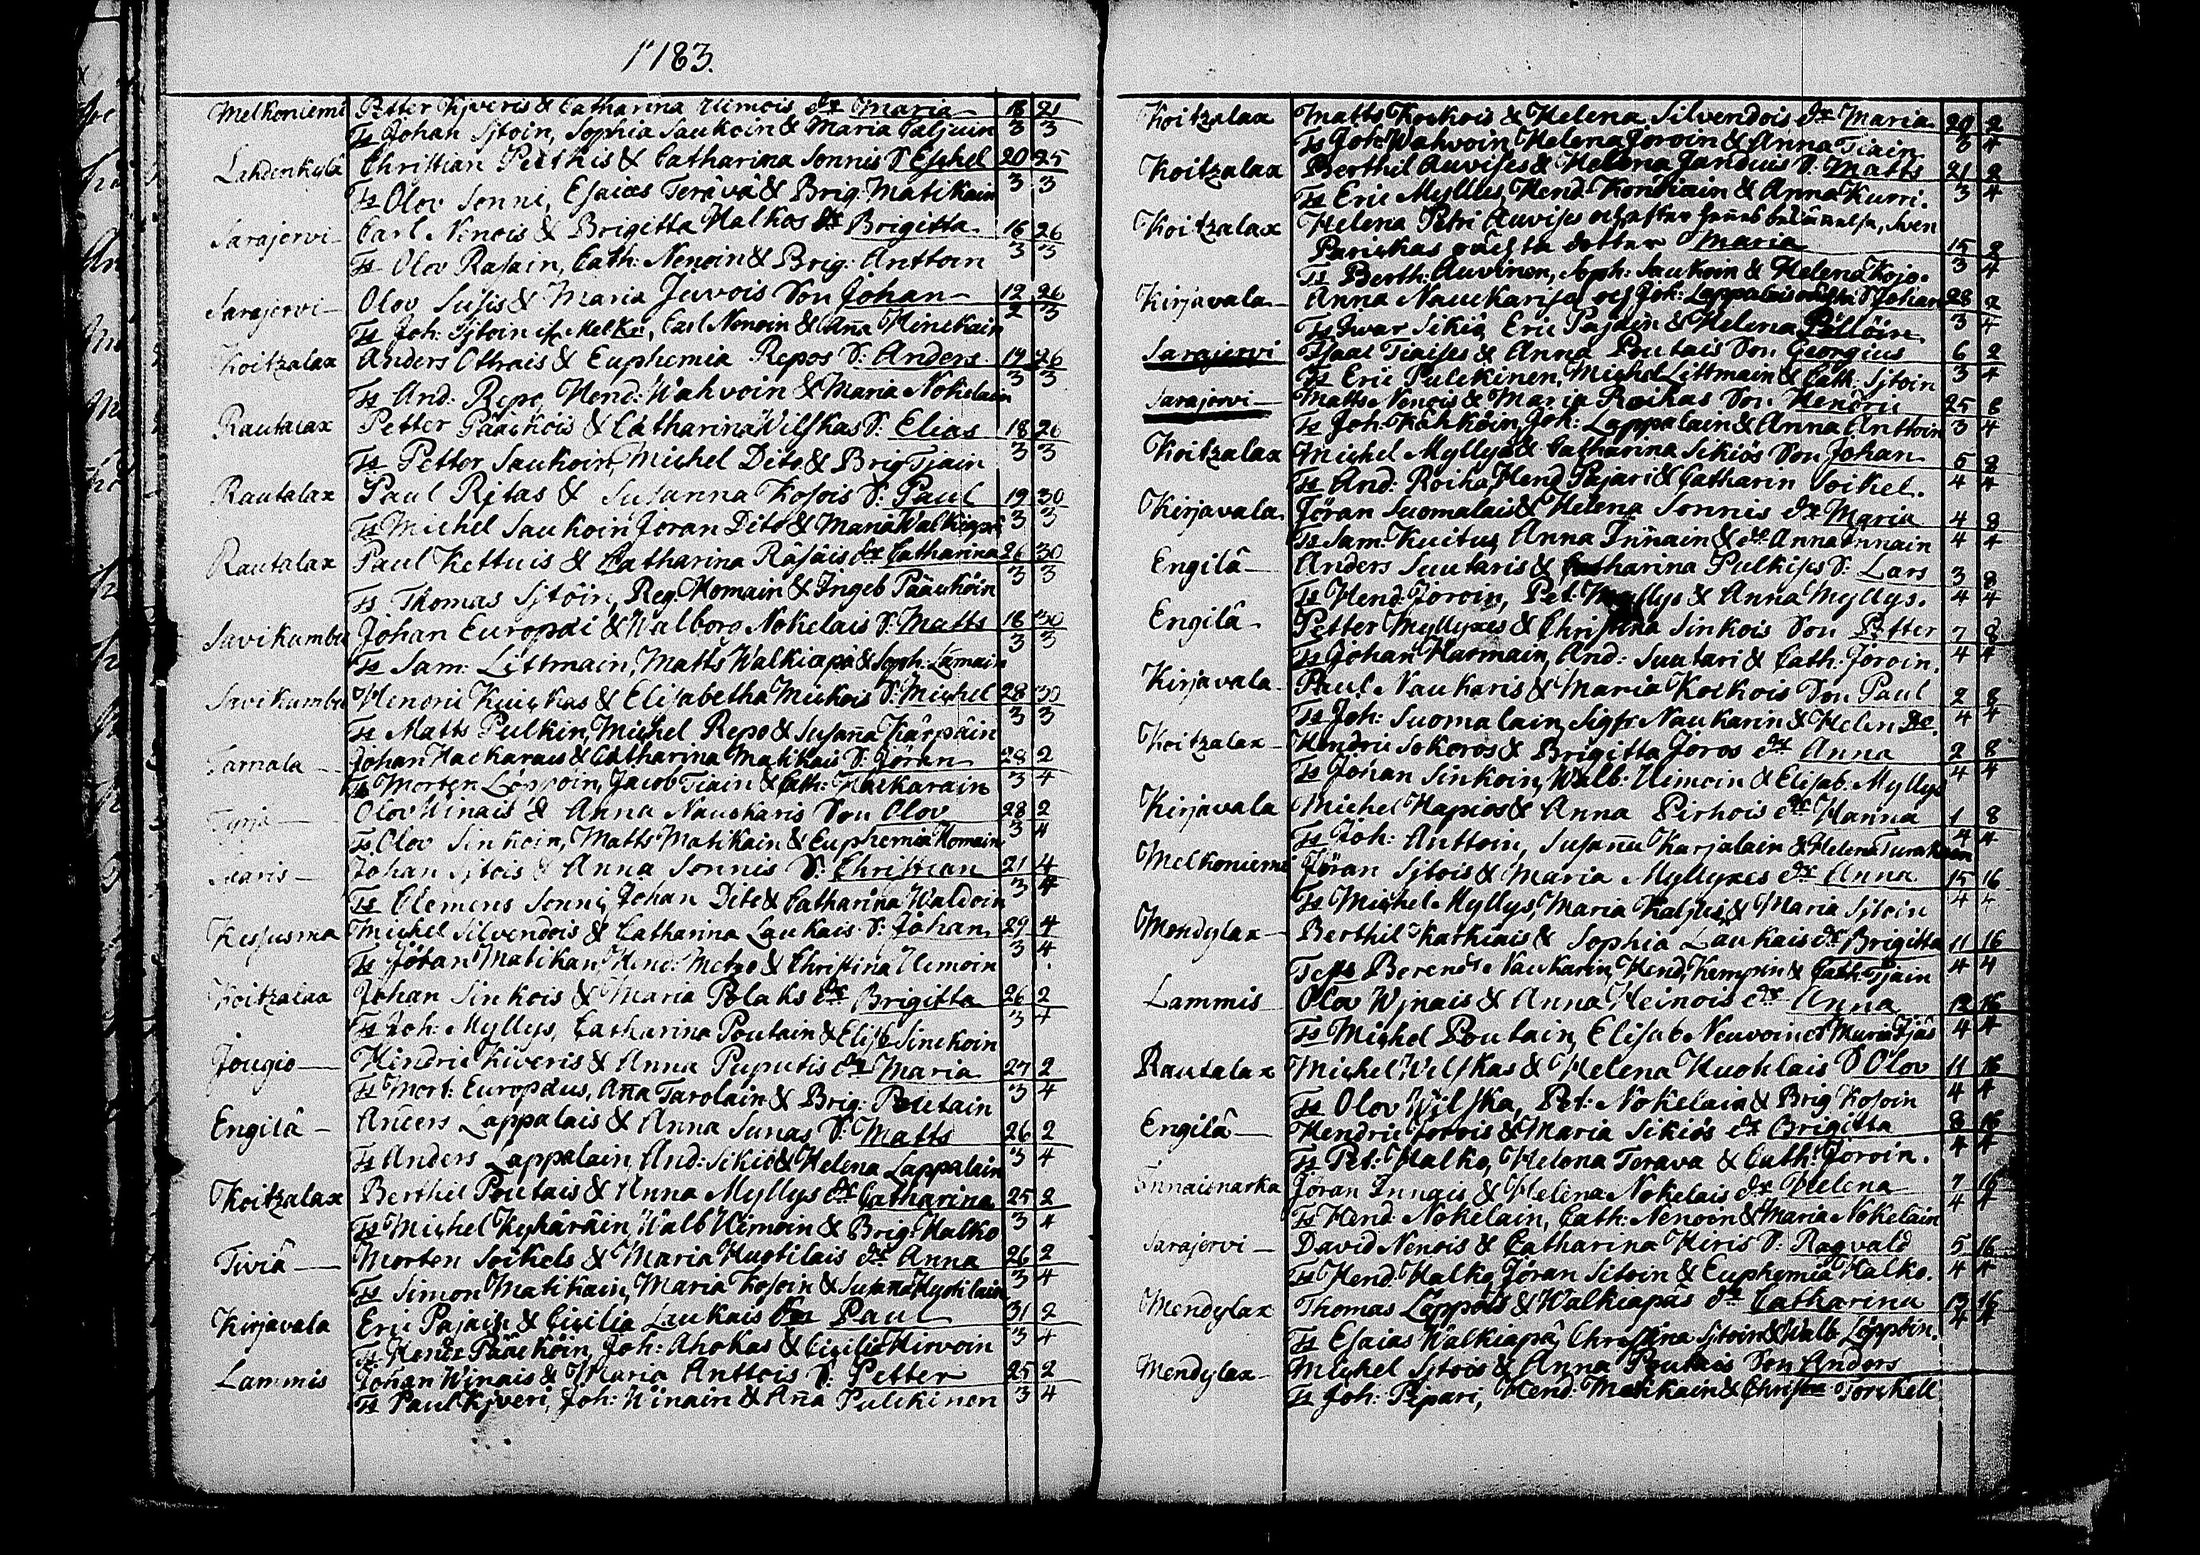 1783.
Melkoniemi Petter Kjveris & Catharina Uimois dr Maria 18 21
Ts Johan Sjtoin, Sophia Saukoin & Maria Caljuin 3 3
Lahdenkylä Christian Pettkis & Catharina Sonnis S. Eskel 20 25
Ts Olov Sonni, Esaias Terävä & Brig. Matikain 3 3
Sarajervi Carl Nenois & Brigitta Halkos dr Brigitta 16 26
Ts Olov Rasain, Cath: Nenoin & Brig: Anttoin 3 3
Sarajervi Olov Susis & Maria Juvois Son Johan 12 26
Ts Joh: Sjtoin if Melko, Carl Nenoin & Anna Hinckain 2 3
Koitzalax Anders Ottrais & Euphemia Repos S: Anders 19 26
Ts And: Repo, Hend: Wahvoin & Maria Nokelain 3 3
Rautalax Petter Pääckois & Catharina Vilskas S: Elias 18 26
Ts Petter Saukoin, Michel Dito & Brig Tjain 3 3
Rautalax Paul Ritas & Susanna Kosois S: Paul 19 30
Ts Michel Saukoin Jöran Dito & Maria Walkiapä 3 3
Rautalax Paul Kettuis & Catharina Räsais dr Catharina 26 30
Ts Thomas Sjtoin, Reg. Homain & Ingeb Pääcköin 3 3
Savikumbu Johan Europæi & Walborg Nokelais S: Matts 18 30
Ts Sam: Littmain, Matts Walkiapä & Soph: Lamain 3 3
Savikumbu Hendric Kuickas & Elisabetha Mickois S: Michel 28 30
Ts Matts Pulkin, Michel Repo & Susanna Kärpäin 3 3
Jamala Johan Hackarais & Catharina Matikais S: Jöran 28 2
Ts Morten Löppoin, Jacob Tiain & Cath: Hackarain 3 4
Tyrjä Olov Winais & Anna Nauckaris Son Olov 28 2
Ts Olov Sinkoin, Matts Matikain & Euphemia Homain 3 4
Johan Sjtois & Anna Sonnis S: Christian 21 4
Ts Clemens Sonni, Johan Dito & Catharina Waldoin 3 4
Kesusma Michel Silvendois & Catharina Laukais S: Johan 29 4
Ts Johan Matikan, Hend: Metzo & Christina Uimoin 3 4
Koitzalax Johan Sinkois & Maria Polaks dr Brigitta 26 2
Ts Joh: Myllys, Catharina Poutain & Elisb Sinckoin 3 4
Jougio Hindric Kiveris & Anna Puputis dr Maria 27 2
Ts Mort: Europæus, Anna Tarolain & Brig: Poutain 3 4
Engilä Anders Lappalais & Anna Sunas S: Matts 26 2
Ts Anders Lappalain, And: Sikiö & Helena Lappalain 3 4
Koitzalax Berthil Poutais & Anna Myllys dr Catharina 25 2
Ts Michel Kyhäräin, Walb Uimoin & Brig: Halko 3 4
Tiviä Morten Soikels & Maria Huotilais dr Anna 26 2
Ts Simon Matikain, Maria Kosoin & Susana Huotilain 3 4
Kirjavala Eric Pajais & Cicilia Laukais Son Paul 31 2
Ts Hendr Pääcköin, Joh: Ahokas & Cicilia Hirvoin 3 4
Lammis Johan Winais & Maria Anttois S: Petter 25 2
Ts Paul Kjveri, Joh: Winain & Anna Pulckinen 3 4
Koitzalax Matts Kockois & Helena Silvendois dr Maria 20 2
Ts Joh: Wahvoin, Helena Joroin & Anna Tiain 3 4
Koitzalax Berthil Auvises & Helena Janduis S: Matts 21 2
Ts Eric Myllys, Hend Konckain & Anna Kurri. 3 4
Koitzalax Helena Petri Auvises och efter hennes bekännelse, Sven
Parickas oächta dotter Maria 15 2
Ts Berth: Auvinen, Soph: Saukoin & Helena Kojo. 3 4
Kirjavala Anna Nauckarisa och Joh: Lappalais oächta S Johan 28 2
Ts Jwar Sikiö, Eric Pajain & Helena Pöllöin 3 4
Sarajervi Isaac Tiaises & Anna Poutais Son Georgius 6 2
Ts Eric Pulckinen, Michel Littmain & Cath: Sjtoin 3 4
Sarajervi Matts Nenois & Maria Roikas Son Hendric 25 8
Ts Joh: Kähköin, Joh: Lappalain & Anna Anttoin 3 4
Koitzalax Michel Myllys & Catharina Sikiös Son Johan 5 8
Ts And: Roika, Hend Pajari & Catharin Soikel. 4 4
Kirjavala Jöran Suomalais & Helena Sonnis dr Maria 4 8
Ts Sam: Kuitus, Anna Innain & dr Anna Innain 4 4
Engilä Anders Suutaris & Catharina Pulkises S: Lars 3 8
Ts Hend: Joroin, Pet: Myllys & Anna Myllys. 4 4
Engilä Petter Myllyxes & Christina Sinkois Son Petter 7 8
Ts Johan Harmain, And: Suutari & Cath: Joroin. 4 4
Kirjavala Paul Naukaris & Maria Kockois Son Paul 2 8
Ts Joh: Suomalain, Sigfr Naukarin & Helen Do. 4 4
Koitzalax Hendric Sokoros & Brigitta Joros dr Anna 2 8
Ts Johan Sinkoin, Walb: Uimoin & Elisab: Myllys 4 4
Kirjavala Michel Hapios & Anna Pirhois dr Hanna 1 8
Ts Joh: Anttoin, Susanna Karjalain & Helena Turakain 4 4
Melkoniemi Jöran Sjtois & Maria Myllyxes dr Anna 15 16
Ts Michel Myllys, Maria Kaljui & Maria Sjtoin 4 4
Mendylax Berthil Karhiais & Sophia Laukais dr Brigitta 11 16
Tests Berend Naukarin, Hend, Kemppin & Cath: Tjain 4 4
Lammis Olov Wjnais & Anna Heinois dr Anna 12 16
Ts Michel Poutain, Elisab Neuvoin & Maria Tjäs 4 4
Rautalax Michel Wilskas & Helena Huotilais S Olov 11 16
Ts Olov Wilska, Pet: Nokelain & Brig Kosoin 4 4
Engilä Hendric Jorois & Maria Sikiös dr Brigitta 8 16
Ts Pet: Halko, Helena Terava & Cath: Joroin. 4 4
Innaienarka Jöran Innais & Helena Nokelais dr Helena 7 16
Ts Hend: Nokelain, Cath: Nenoin & Maria Nokelain 4 4
Sarajervi David Nenois & Catharina Hiris S: Ragvald 5 16
Ts Hend: Halko, Jöran Sitoin & Euphemia Halko. 4 4
Mendylax Thomas Löppöis & Walkiapas dr Catharina 13 16
Ts Esaias Walkiapä, Christina Sjtoin & Walb Löppöin. 4 4
Mendylax Michel Sjtois & Anna Poutais Son Anders
Ts Joh: Pipari, Hend: Matikain & Christin Torckell